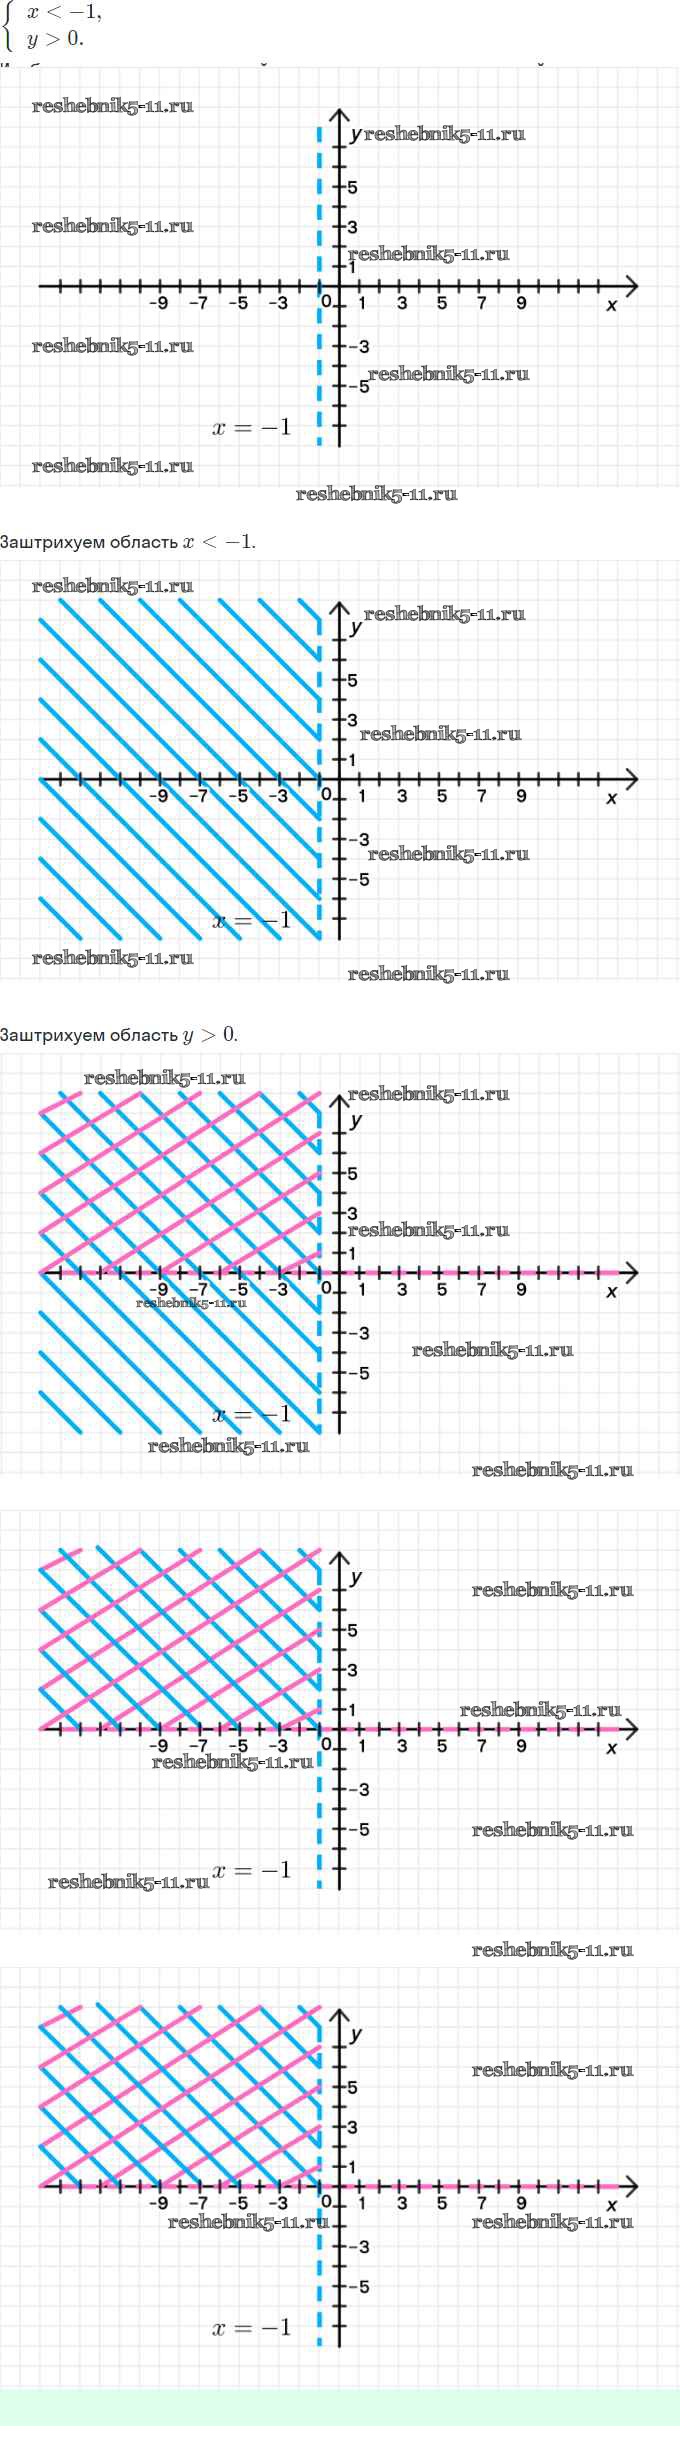 { x < −1,
y > 0.
reshebnik5-11.ru
y reshebnik5-11.ru
5
reshebnik5-11.ru
3
reshebnik5-11.ru
1
-9 -7 -5 -3 0 1 3 5 7 9 x
reshebnik5-11.ru
-3
reshebnik5-11.ru
-5
x = −1
reshebnik5-11.ru
reshebnik5-11.ru
Заштрихуем область x < −1.
reshebnik5-11.ru
reshebnik5-11.ru
y
5
3
reshebnik5-11.ru
1
-9 -7 -5 -3 0 1 3 5 7 9 x
-3
reshebnik5-11.ru
-5
x = −1
reshebnik5-11.ru
reshebnik5-11.ru
Заштрихуем область y > 0.
reshebnik5-11.ru
reshebnik5-11.ru
y
5
3
reshebnik5-11.ru
1
-9 -7 -5 -3 0 1 3 5 7 9 x
reshebnik5-11.ru
-3
reshebnik5-11.ru
-5
x = −1
reshebnik5-11.ru
reshebnik5-11.ru
y
reshebnik5-11.ru
5
3
1
reshebnik5-11.ru
-9 -7 -5 -3 0 1 3 5 7 9 x
reshebnik5-11.ru
-3
-5
reshebnik5-11.ru
x = −1
reshebnik5-11.ru
reshebnik5-11.ru
y
reshebnik5-11.ru
5
3
1
-9 -7 -5 -3 0 1 3 5 7 9 x
reshebnik5-11.ru reshebnik5-11.ru
-3
-5
x = −1